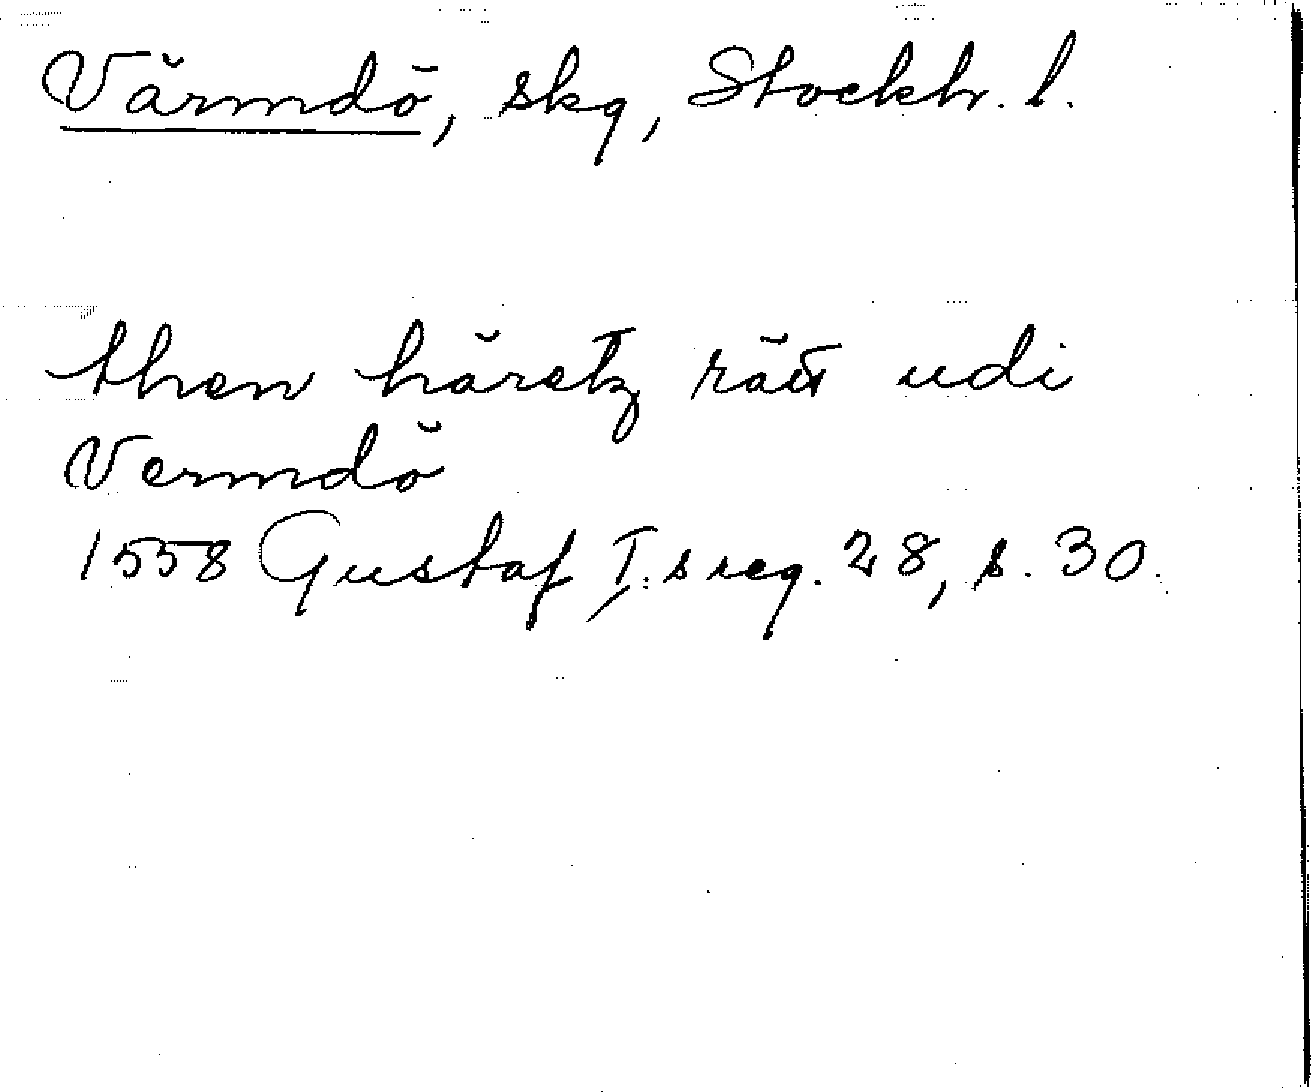 Värmdö, skg, Stockh. l.
then häretz rätt udi
Vermdö
1558 Gustaf I:s reg. 28, s. 30.